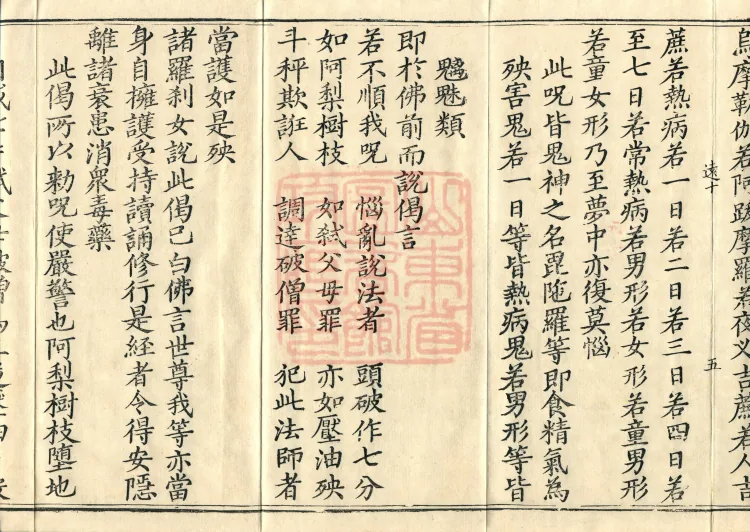 烏摩勒伽若阿跋摩羅若夜叉吉蔗若人吉
遠十 五
蔗若熱病若一日若二日若三日若四日若
至七日若常熱病若男形若女形若童男形
若童女形乃至夢中亦復莫惱
此呪皆鬼神之名毘陁羅等即食精氣為
殃害鬼若一日等皆熱病鬼若男形等皆
魑魅類
即於佛前而說偈言
若不順我呪 惱亂說法者 頭破作七分
如阿梨樹枝 如弒父母罪 亦如壓油殃
斗秤欺誑人 調達破僧罪 犯此法師者
當護如是殃
諸羅剎女說此偈已白佛言世尊我等亦當
身自擁護受持讀誦修行是経者令得安隱
離諸衰患消衆毒藥
此偈所以勑呪使嚴警也阿梨樹枝墮地